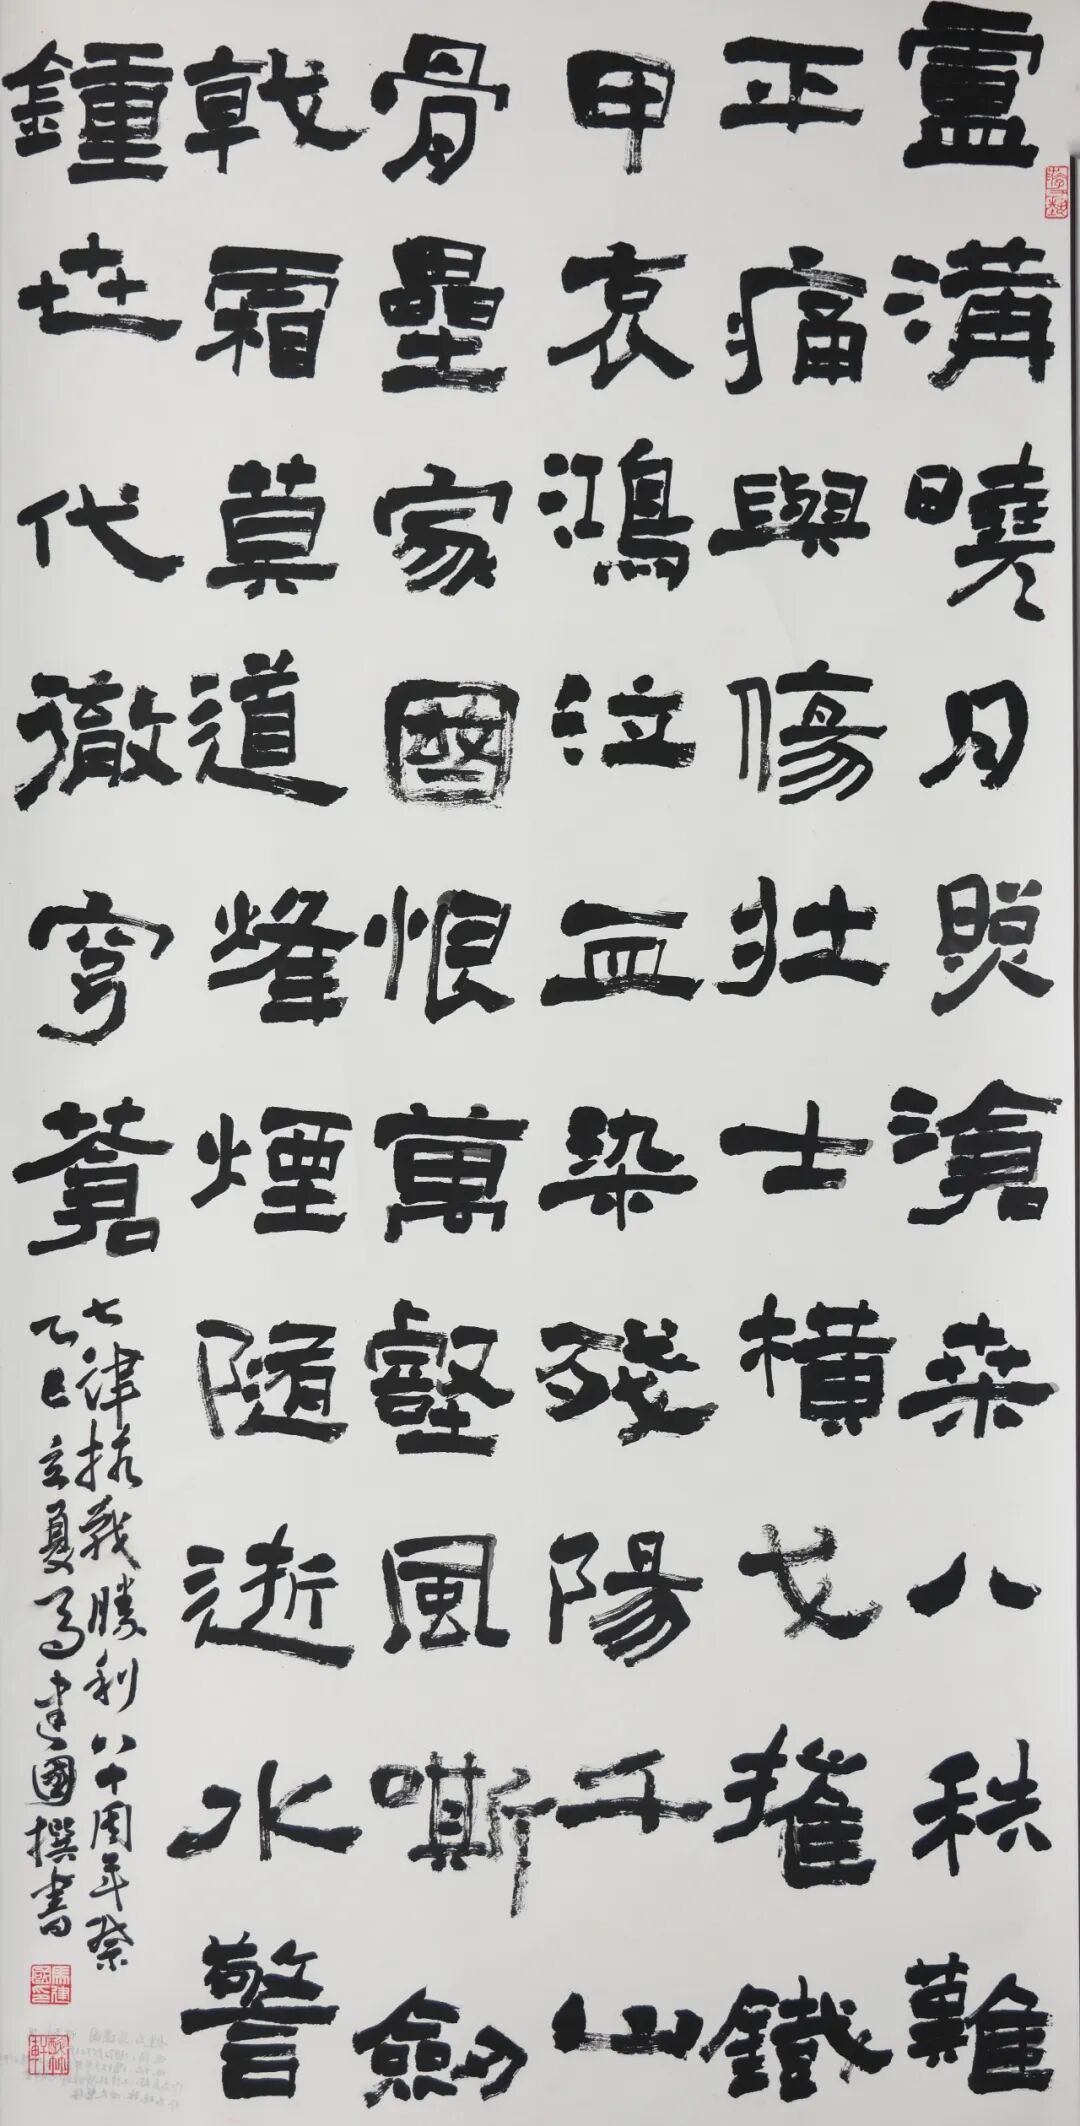 盧溝曉月照滄桑八秩難
正痛與傷壯士橫戈摧鐵
甲哀鴻泣血染殘陽千山
骨壘家國恨萬壑風嘶劍
戟霜莫道烽煙隨逝水警
鍾世代徹穹蒼
七律抗戰勝利八十周年祭
乙巳立夏馬建國撰書
馬建國印